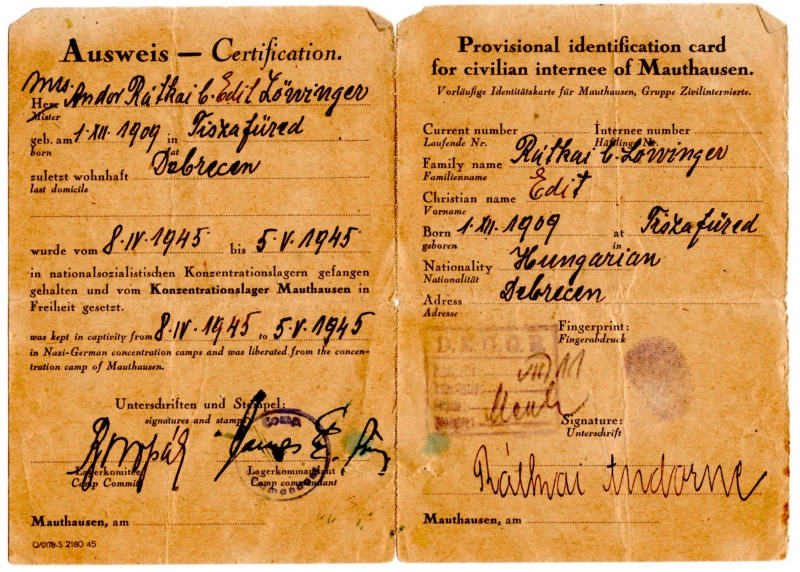 Ausweis — Certification.
Mrs. Andor Rátkai b. Edit Löwinger
Herr
Mister
geb. am 1. XII. 1909 in Tiszafüred
born at
zuletzt wohnhaft Debrecen
last domicile
wurde vom 8. IV. 1945 bis 5. V. 1945
in nationalsozialistischen Konzentrationslagern gefangen
gehalten und vom Konzentrationslager Mauthausen in
Freiheit gesetzt.
was kept in captivity from 8. IV. 1945 to 5. V. 1945
in Nazi-German concentration camps and was liberated from the concen-
tration camp of Mauthausen.
Unterschriften und Stempel:
signatures and stamp
Lagerkomitee Lagerkommandant
Camp Committ Camp commandant
Mauthausen, am
O/0178-S 2180 45
Provisional identification card
for civilian internee of Mauthausen.
Vorläufige Identitätskarte für Mauthausen, Gruppe Zivilinternierte.
Current number Internee number
Laufende Nr. Häftlings-Nr.
Family name Rátkai b. Löwinger
Familienname
Christian name Edit
Vorname
Born 1. XII. 1909 at Tiszafüred
geboren in
Nationality Hungarian
Nationalität
Adress Debrecen
Adresse
Fingerprint:
Fingerabdruck
Signature:
Unterschrift
Rátkai Andorné
Mauthausen, am